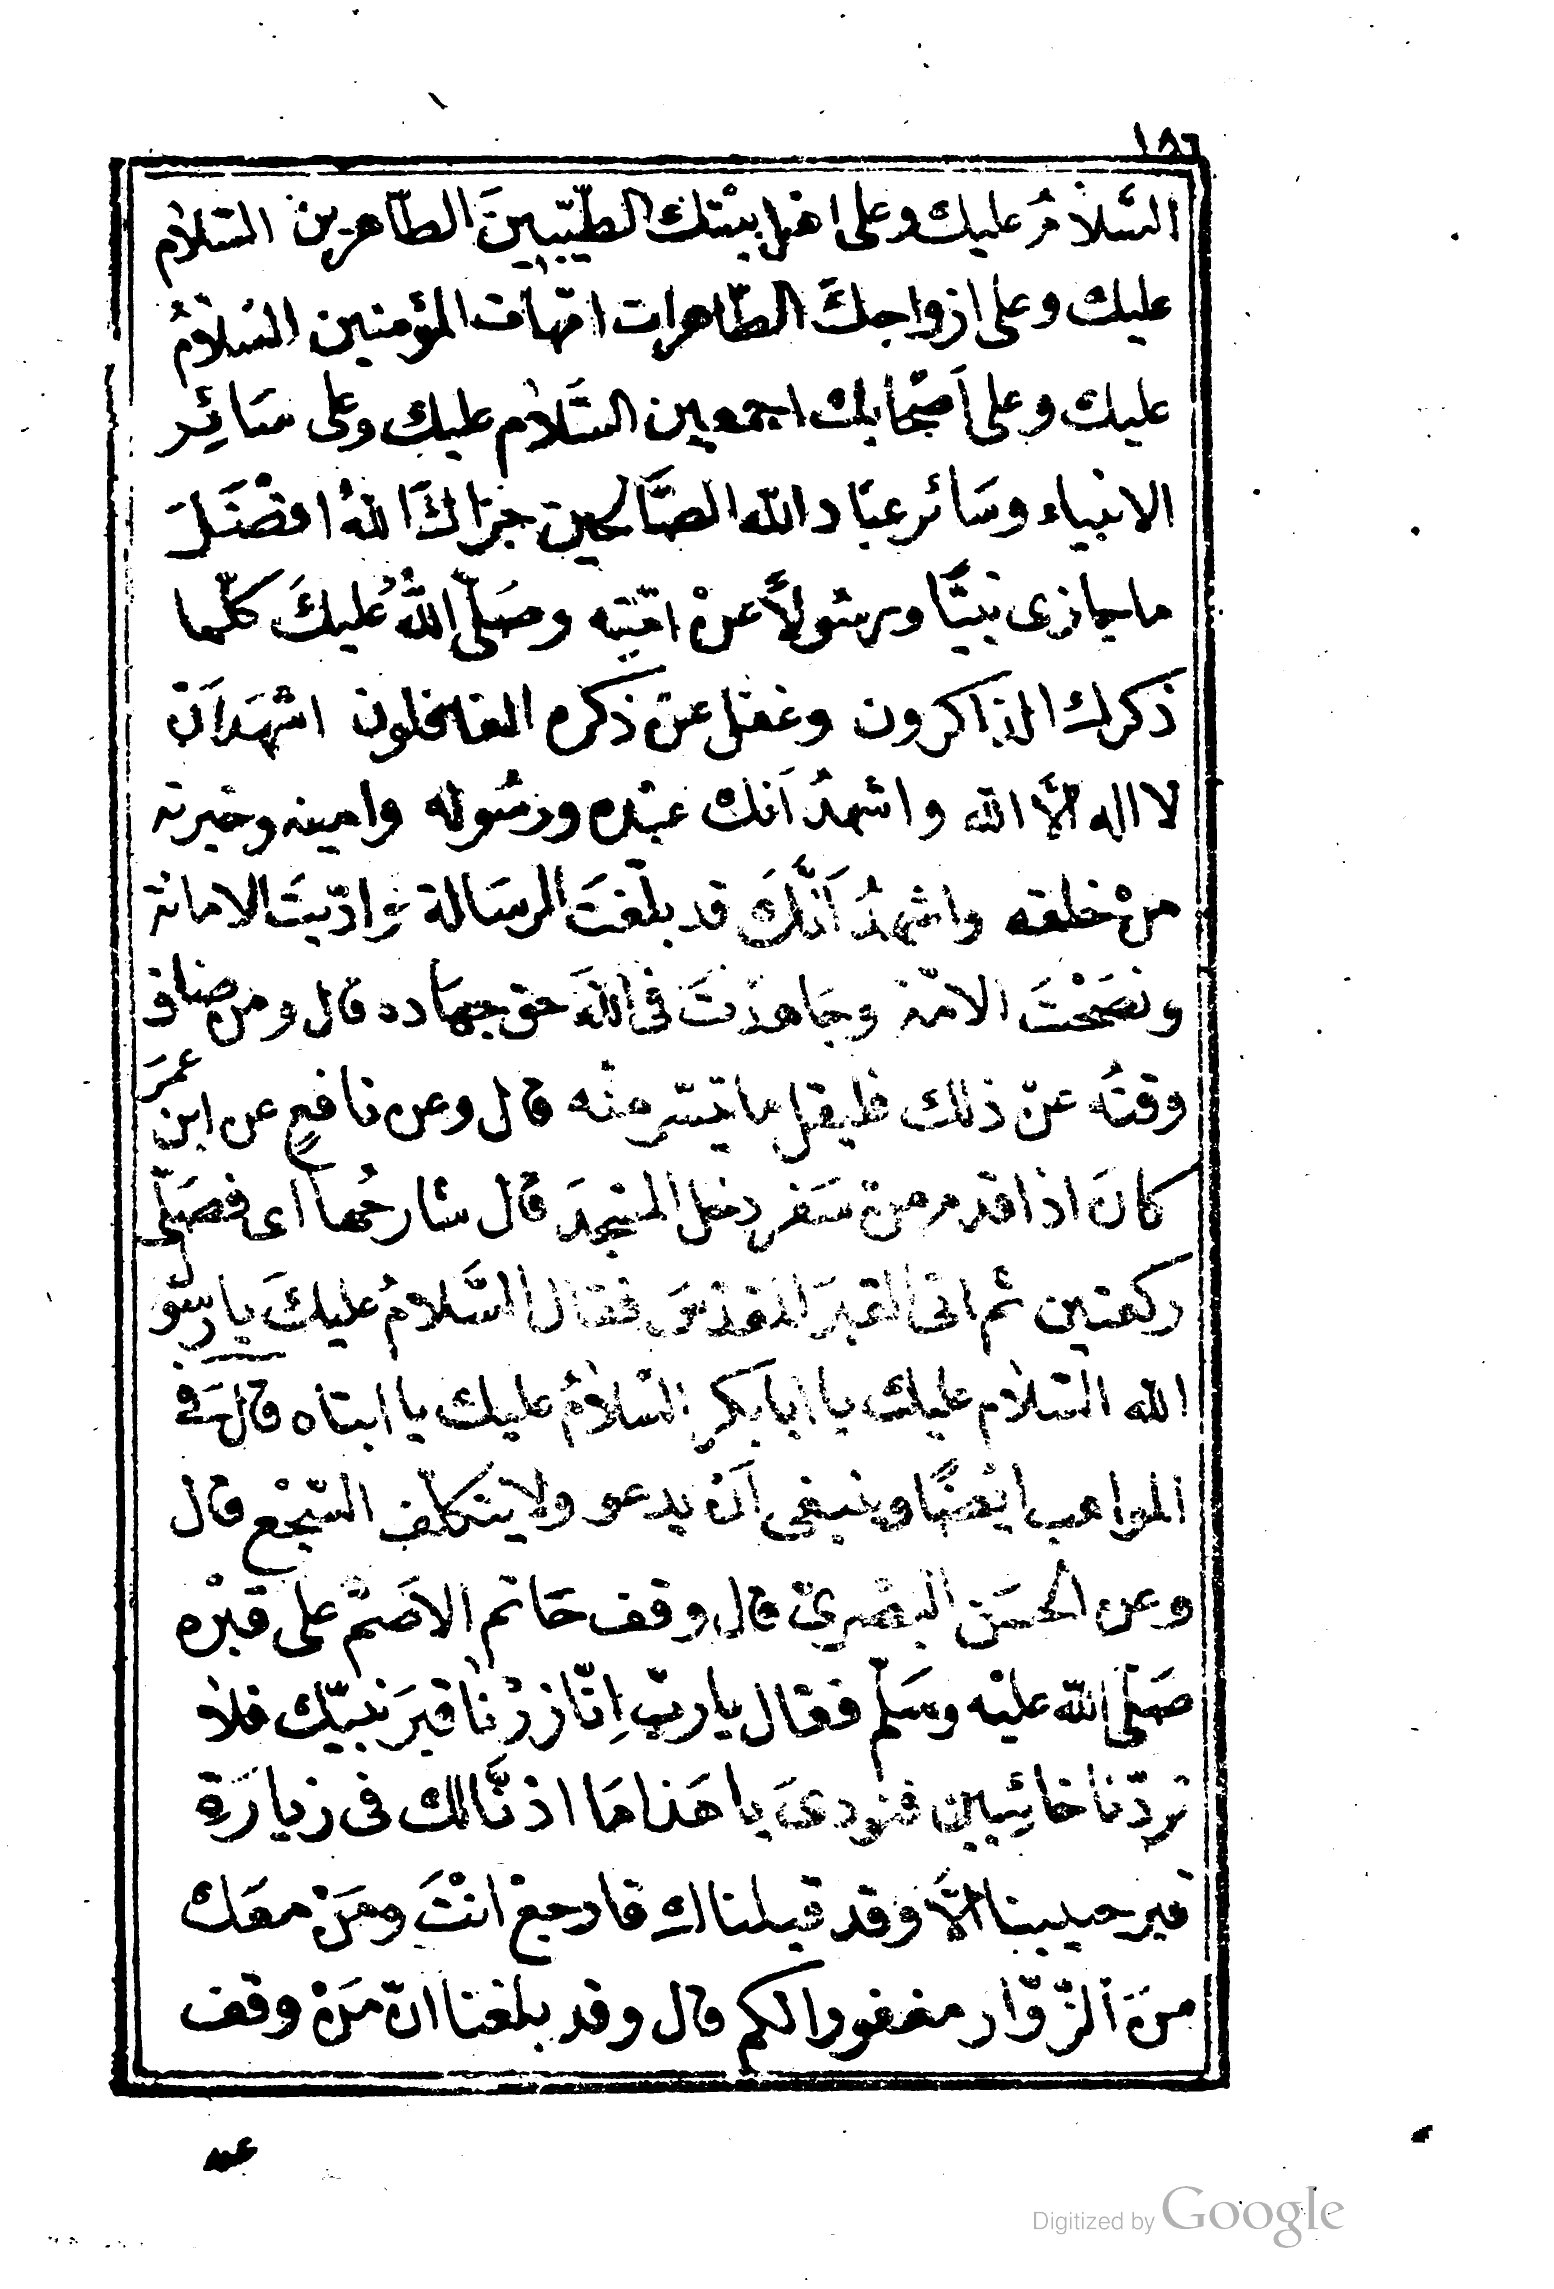 ١٥٦
السَّلامُ عليك وعلى اهل بيْتك الطيّبينَ الطّاهرين السّلام
عليك وعلى ازواجكَ الطّاهرات امّهات المؤمنين السّلامُ
عليك وعلى اَصْحابك اجمعين السَّلام عليك وعلى سَائِر
الانبياء وسَائر عبَاد الله الصَّالحين جزَاكَ اللهُ افضَلَ
ما جازى نبيَّا ورسُولًا عنْ امّته وصَلّى اللهُ عليكَ كلّما
ذكرك الذاكرون وغفل عن ذكره الغافلون اشهَد اَن
لا اله الَّا الله واشهدُ اَنك عبْده ورسُوله وامينه وخيرته
منْ خلقه واشهدُ اَنَّكَ قد بلّغتَ الرسَالة وادّيتَ الامانة
ونصَحْتَ الامّة وجَاهدْتَ فى اللهَ حق جهَاده قال ومن ضاق
وقتُه عنْ ذلك فليقل ما تيسّر منْه قال وعن نافعٍ عن ابن عمَر
كانَ اذا قدم من سَفر دخل المسْجدَ قال شارحُها اى فصَلّى
ركعتين ثم اتى القبرَ المقدّس فقال السَّلامُ عليكَ يا رسو
الله السّلام عليك يا ابا بكر السّلامُ عليك يا ابتاه قالَ فى
المواهب ايْضًا وينبغى اَن يدعو ولا يتكلّف السّجْع قال
وعن الحسَن البصْرى قال وقف حَاتم الاصَمّ على قبْره
صَلّى الله عليْه وسَلّم فقال يا ربّ اِنّا زرْنا قبرَ نبيّك فلا
تردّنا خائِبين فنودىَ يا هَذا مَا اذنَّا لك فى زيارَة
قبر حبيبنا الَّا وقد قبلناك فارجعْ انْتَ ومَنْ معَك
منَ الزّوّار مغفورا لكم قال وقد بلغنا انّ مَنْ وقف
عند
Digitized by Google